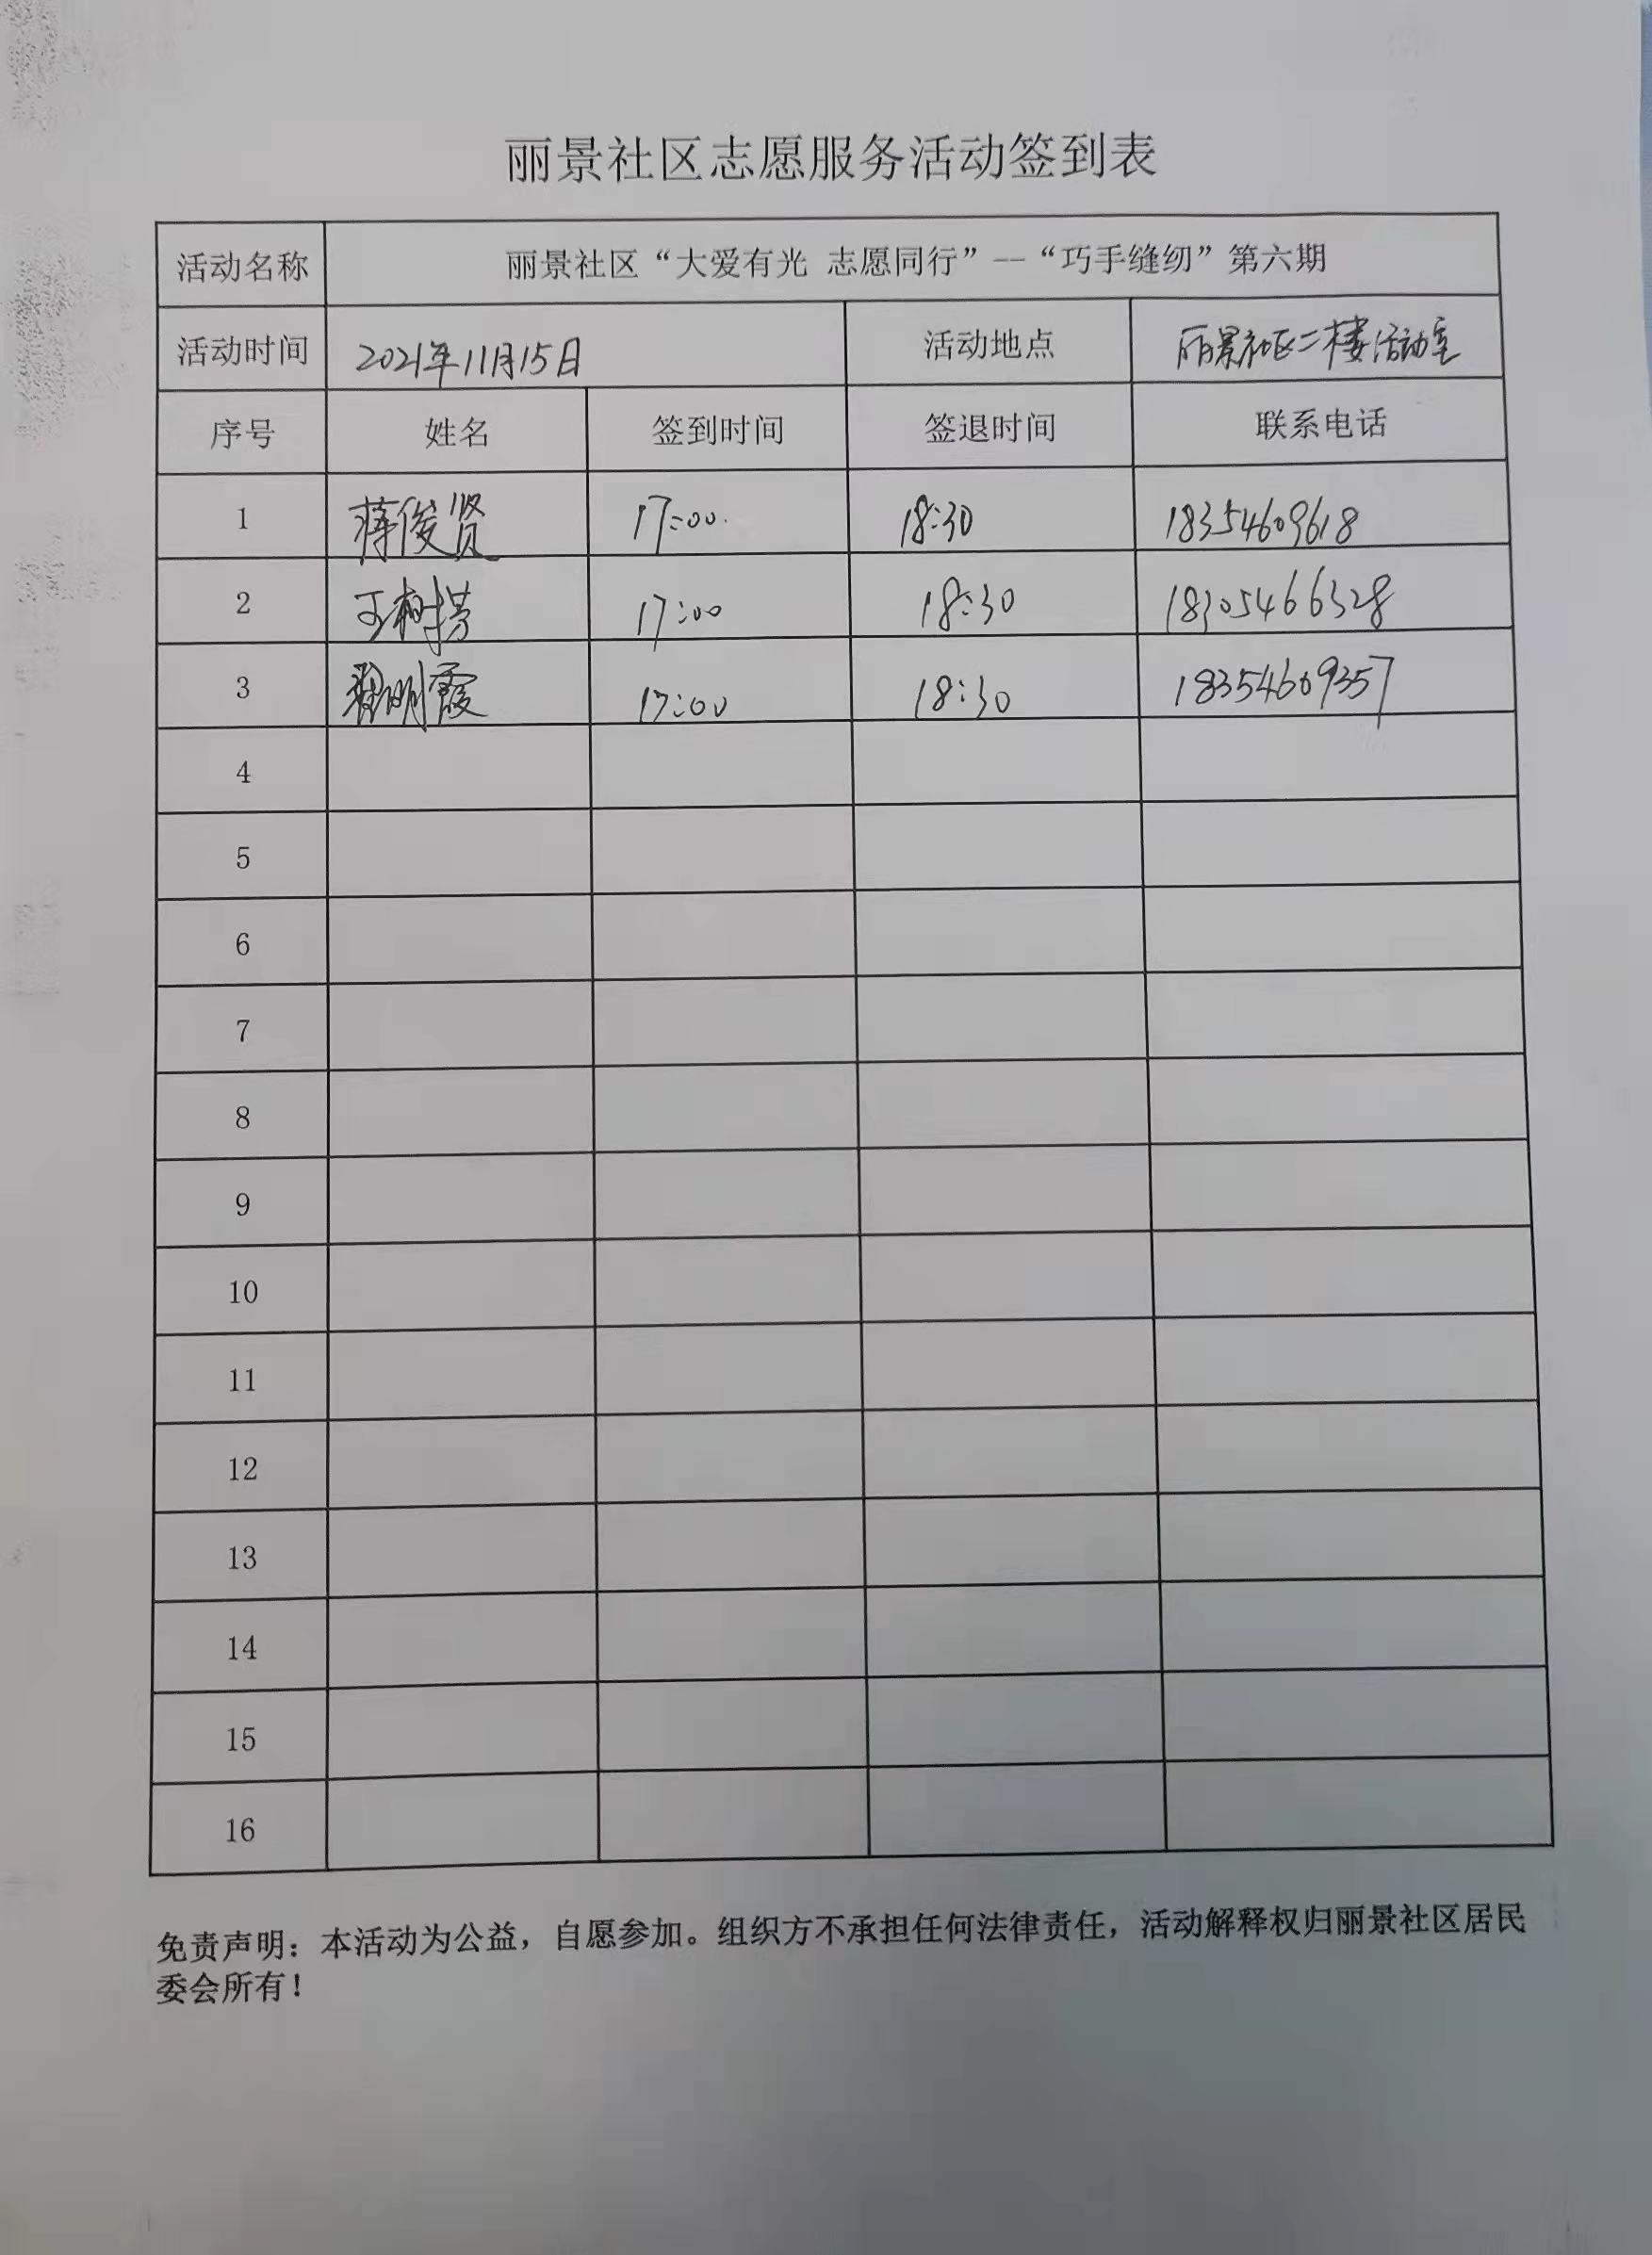 丽景社区志愿服务活动签到表
活动名称 丽景社区“大爱有光 志愿同行”--“巧手缝纫”第六期
活动时间 2021年11月15日 活动地点 丽景社区二楼活动室
序号 姓名 签到时间 签退时间 联系电话
1 蒋俊贤 17:00 18:30 18354609618
2 17:00 18:30 18305466328
3 翟明霞 17:00 18:30 18354609357
4
5
6
7
8
9
10
11
12
13
14
15
16
免责声明：本活动为公益，自愿参加。组织方不承担任何法律责任，活动解释权归丽景社区居民
委会所有！